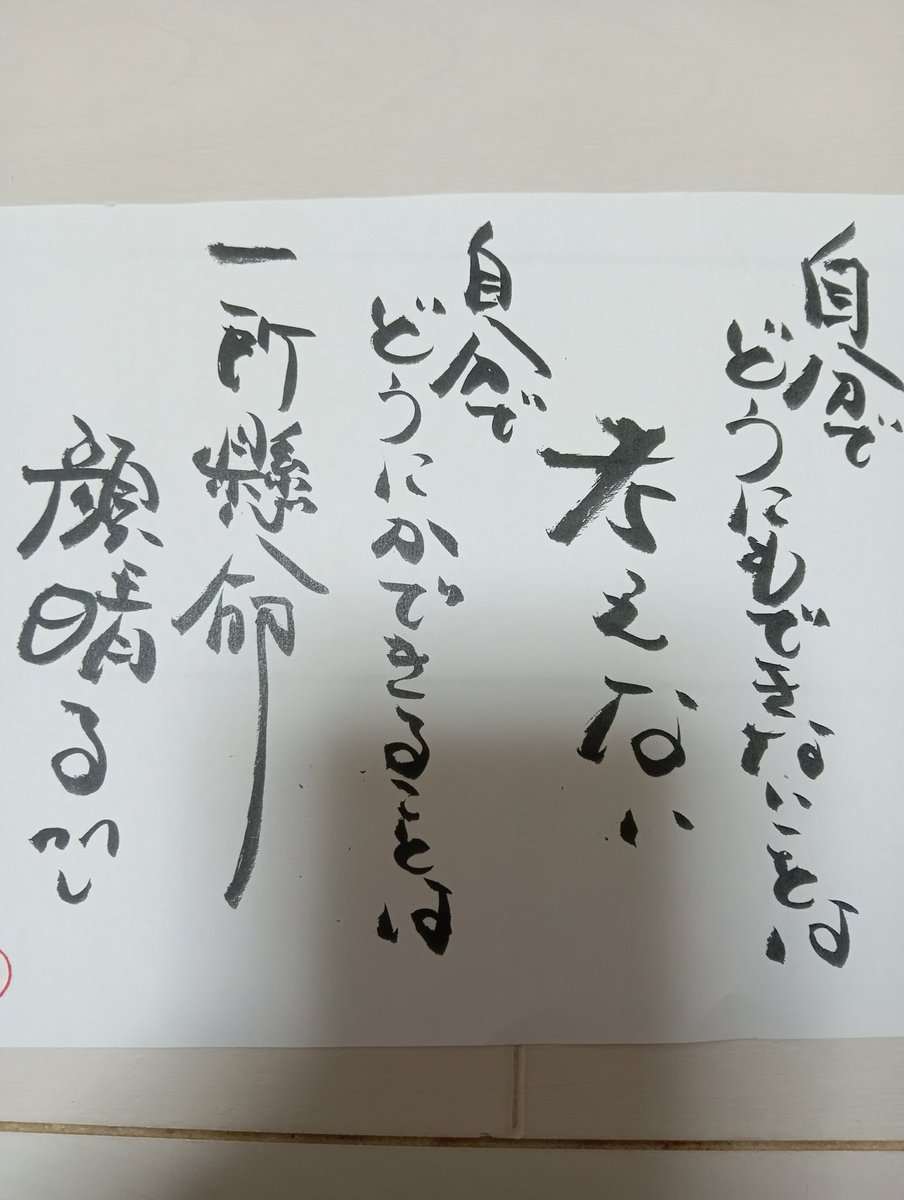 自分で
どうにもできないことは
考えない
自分で
どうにかできることは
一所懸命
顔晴る